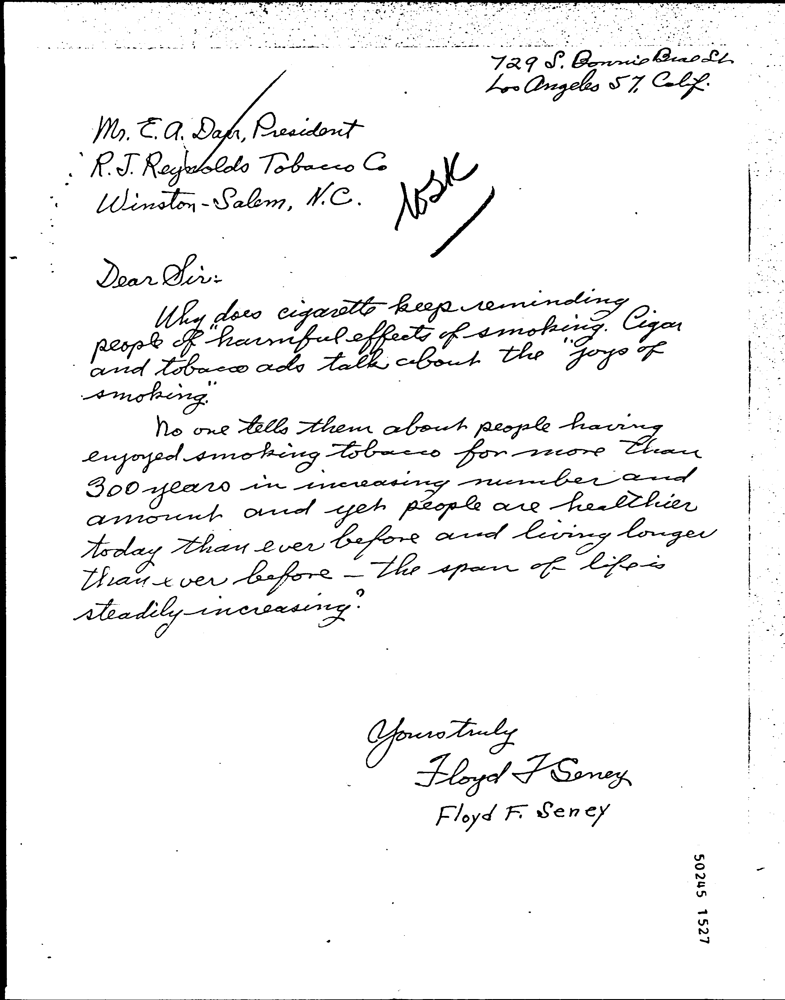 729 S. Bonnie Brae St.
Los Angeles 57, Calif.
Mr. E. A. Darr, President
R. J. Reynolds Tobacco Co
Winston-Salem, N.C.
Dear Sir:
Why does cigarette keep reminding
people of "harmful effects of smoking. Cigar
and tobacco ads talk about the "joys of
smoking."
No one tells them about people having
enjoyed smoking tobacco for more than
300 years in increasing number and
amount and yet people are healthier
today than ever before and living longer
than ever before – the span of life is
steadily increasing?
Yours truly
Floyd F Seney
Floyd F. Seney
50245 1527